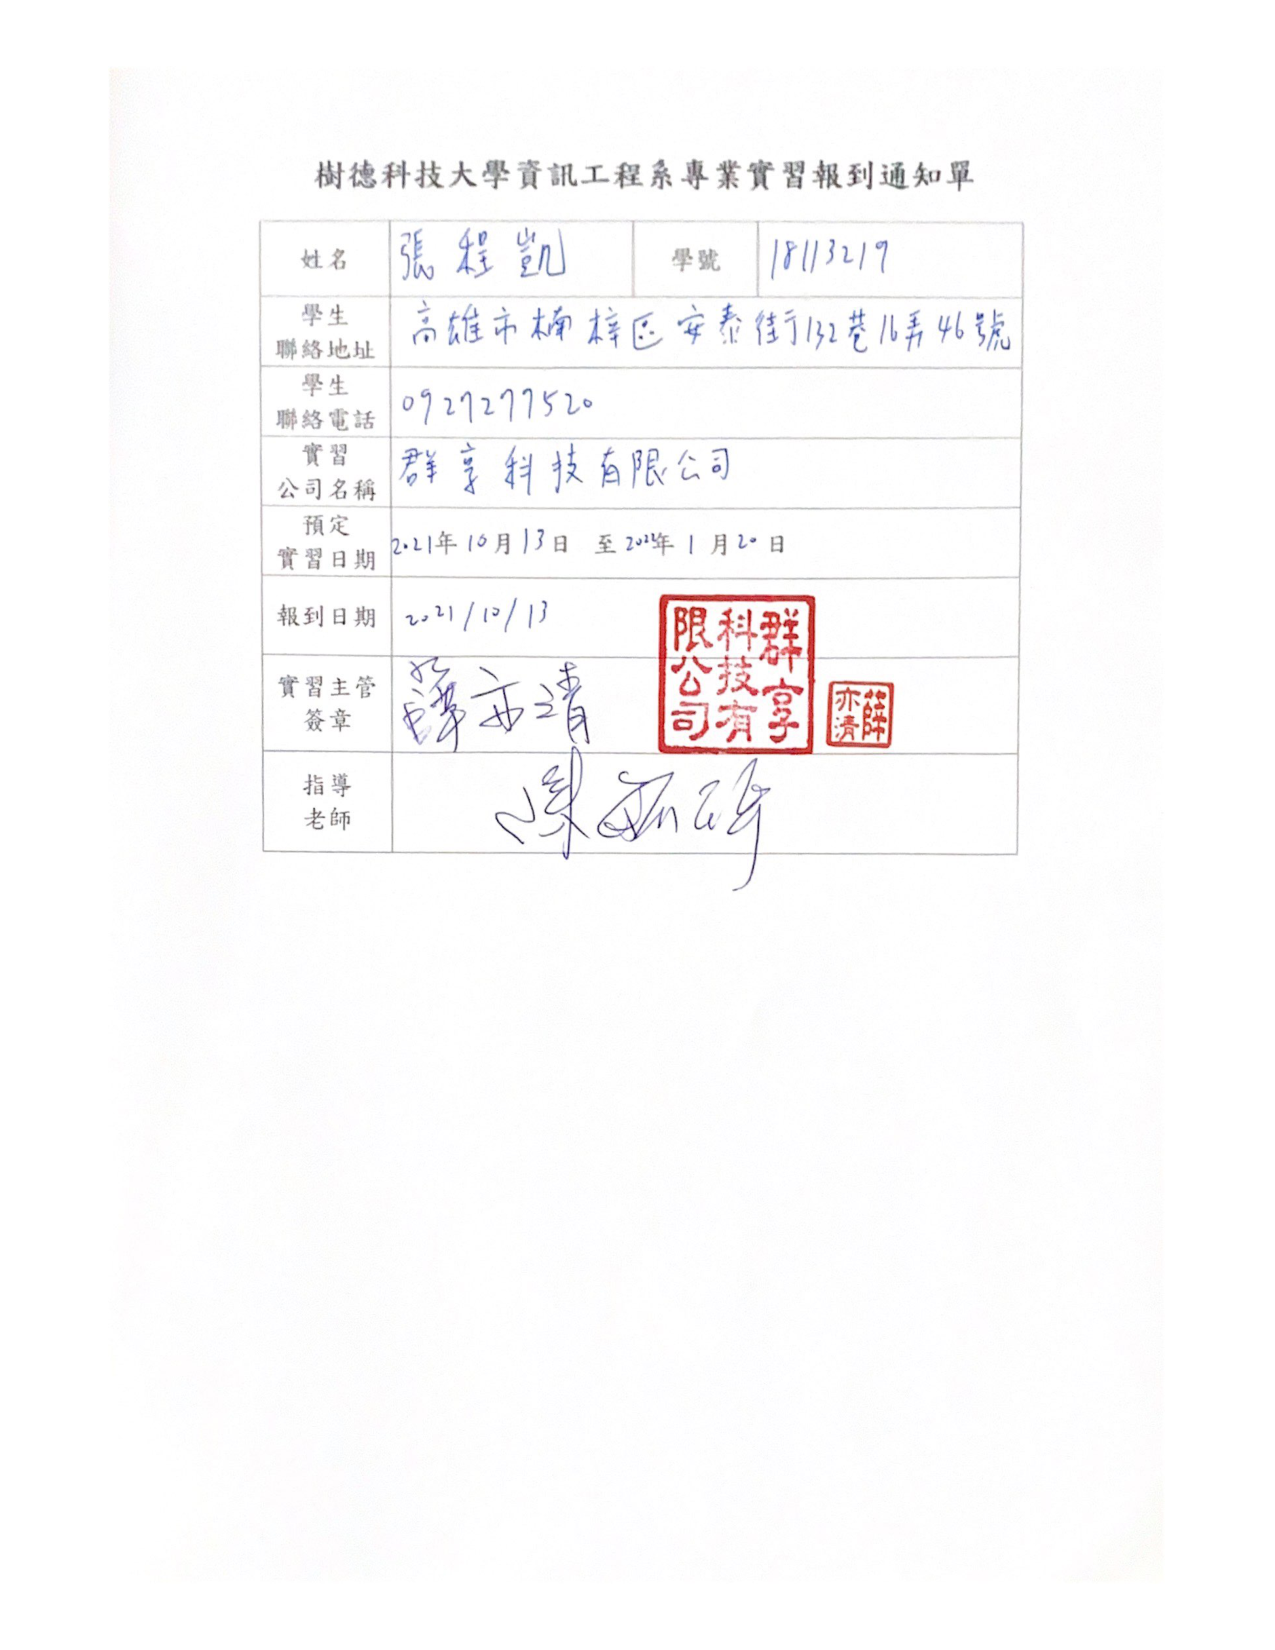 樹德科技大學資訊工程系專業實習報到通知單
姓名 張程凱 學號 18113219
學生
聯絡地址 高雄市楠梓區安泰街132巷16弄46號
學生
聯絡電話 0927277520
實習
公司名稱 群享科技有限公司
預定
實習日期 2021年10月13日 至2022年1月20日
報到日期 2021/10/13
實習主管
簽章 薛亦清
群享
科技有
限公司
薛
亦清
指導
老師 陳